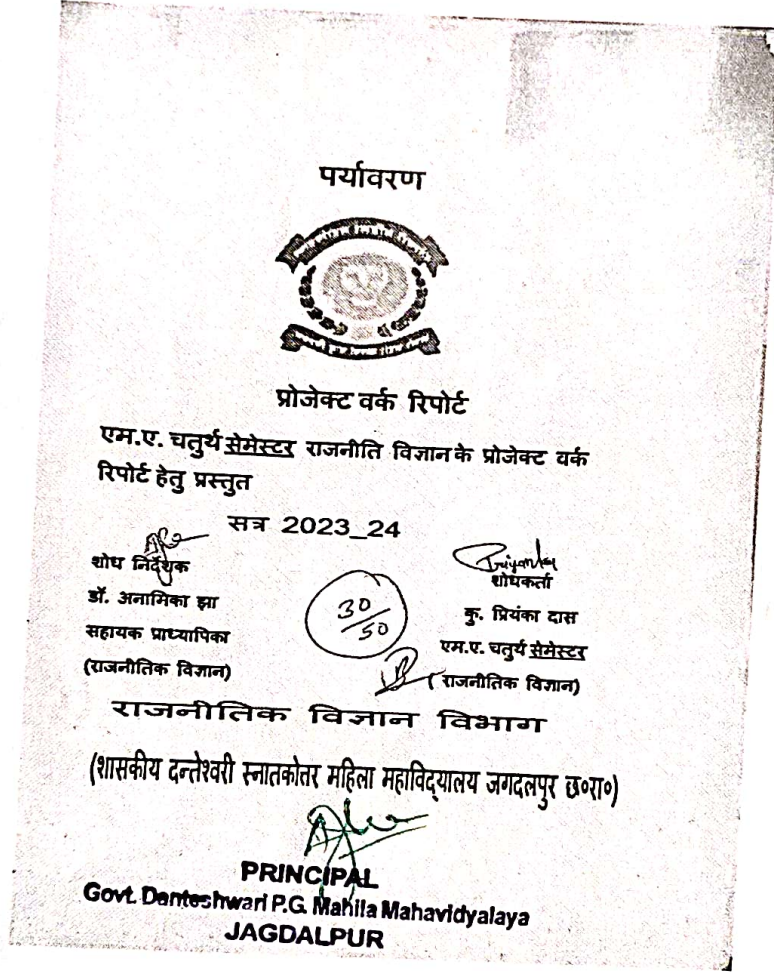 पर्यावरण
प्रोजेक्ट वर्क रिपोर्ट
एम.ए. चतुर्थ सेमेस्टर राजनीति विज्ञान के प्रोजेक्ट वर्क
रिपोर्ट हेतु प्रस्तुत
सत्र 2023_24
शोध निर्देशक
डॉ. अनामिका झा
सहायक प्राध्यापिका
(राजनीतिक विज्ञान)
30/50
Priyanka
शोधकर्ता
कु. प्रियंका दास
एम.ए. चतुर्थ सेमेस्टर
(राजनीतिक विज्ञान)
राजनीतिक विज्ञान विभाग
(शासकीय दन्तेश्वरी स्नातकोत्तर महिला महाविद्यालय जगदलपुर छ०रा०)
PRINCIPAL
Govt. Danteshwari P.G. Mahila Mahavidyalaya
JAGDALPUR